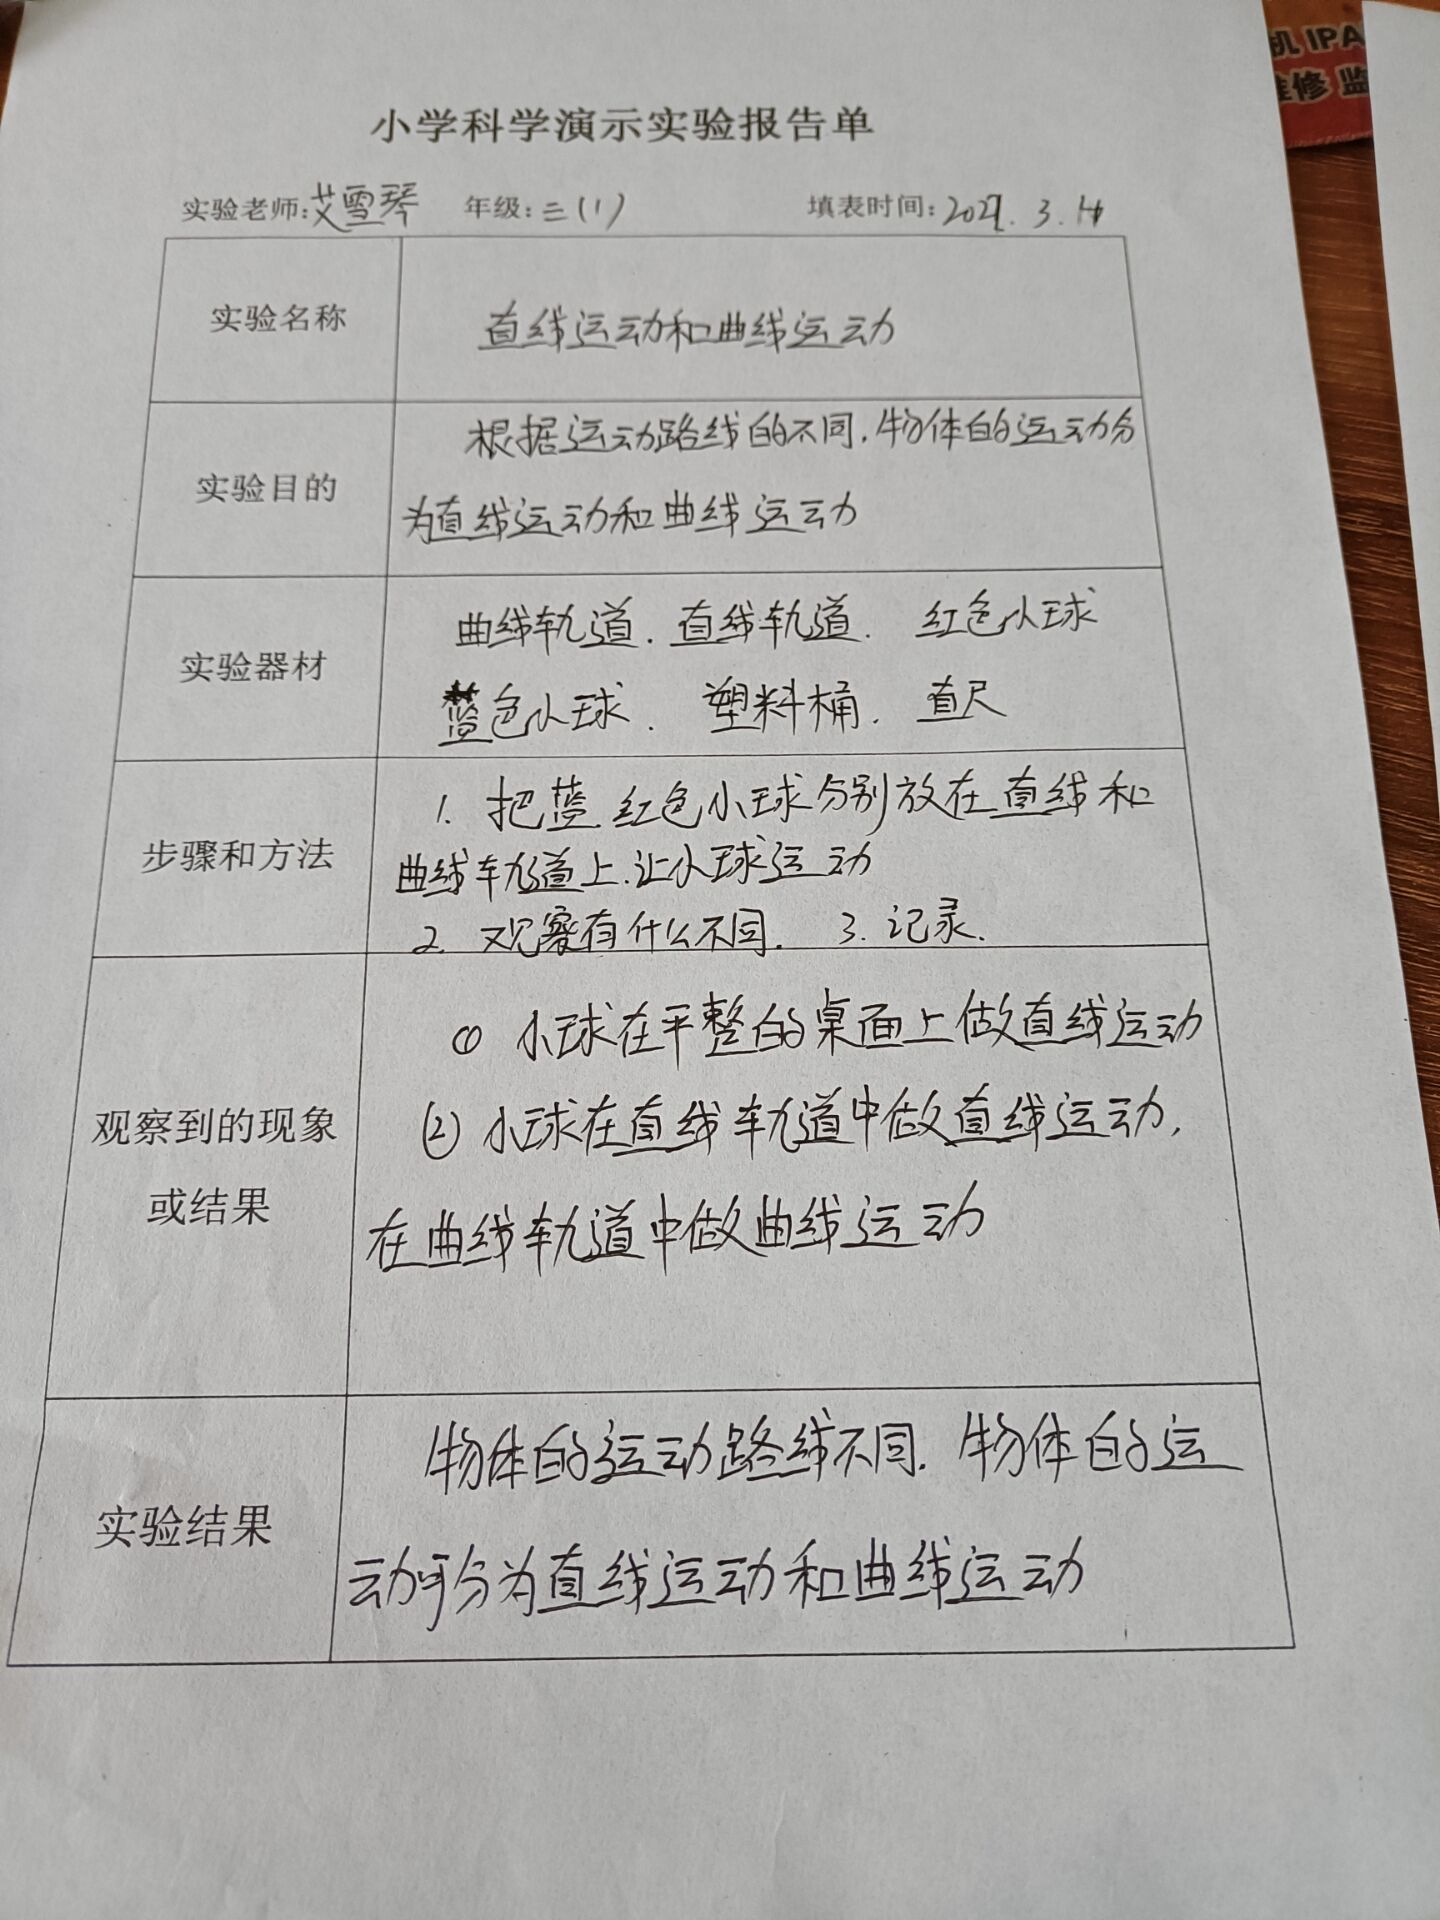 机 IPA
维修 监
小学科学演示实验报告单
实验老师:艾雪琴 年级:三(1) 填表时间:
实验名称
直线运动和曲线运动
实验目的
根据运动路线的不同.物体的运动分
为直线运动和曲线运动
实验器材
曲线轨道. 直线轨道. 红色小球
蓝色小球. 塑料桶. 直尺
步骤和方法
1. 把蓝.红色小球分别放在直线和
曲线轨道上.让小球运动
2. 观察有什么不同. 3. 记录.
观察到的现象
或结果
① 小球在平整的桌面上做直线运动
(2) 小球在直线轨道中做直线运动,
在曲线轨道中做曲线运动
实验结果
物体的运动路线不同. 物体的运
动可分为直线运动和曲线运动